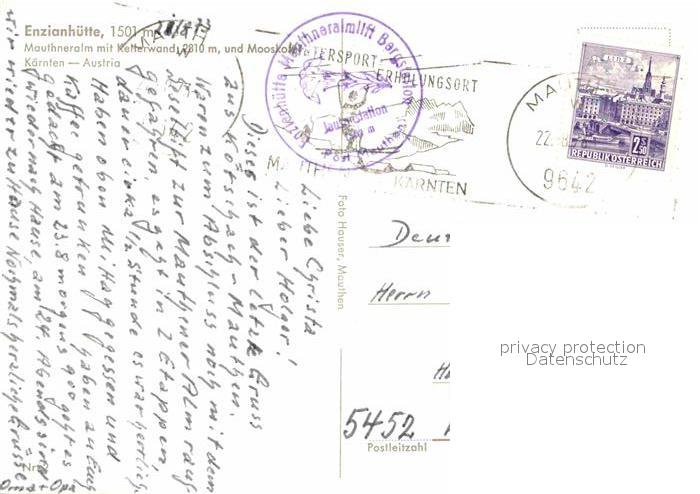 Enzianhütte, 1501 m
Mauthneralm mit Kellerwand, 2810 m, und Mooskofel
Kärnten — Austria
Enzianhütte Mauthneralmlift Bergstation
Post Mauthen
WINTERSPORT-
ERHOLUNGSORT
MAUTHEN
KÄRNTEN
22.
9642
LINZ
2.50
S
REPUBLIK ÖSTERREICH
Liebe Christa
Lieber Holger!
Dieses ist der letzte Gruss
aus Kötschach-Mauthen.
Waren zum Abschluss noch mit dem
Sessellift zur Mauthener Alm rauf
gefahren, es geht in 2 Etappen,
dauert cirka 1/2 Stunde es war herrlich
Haben oben Mittag gegessen und
Kaffee getrunken haben an Euch
gedacht am 23.8 morgens geht es
wieder nach Hause, am 24. Abends sind
wir wieder zu Hause Nochmals herzliche Grüsse
Oma + Opa
Foto Hauser, Mauthen
Herrn
5452
Postleitzahl
privacy protection
Datenschutz